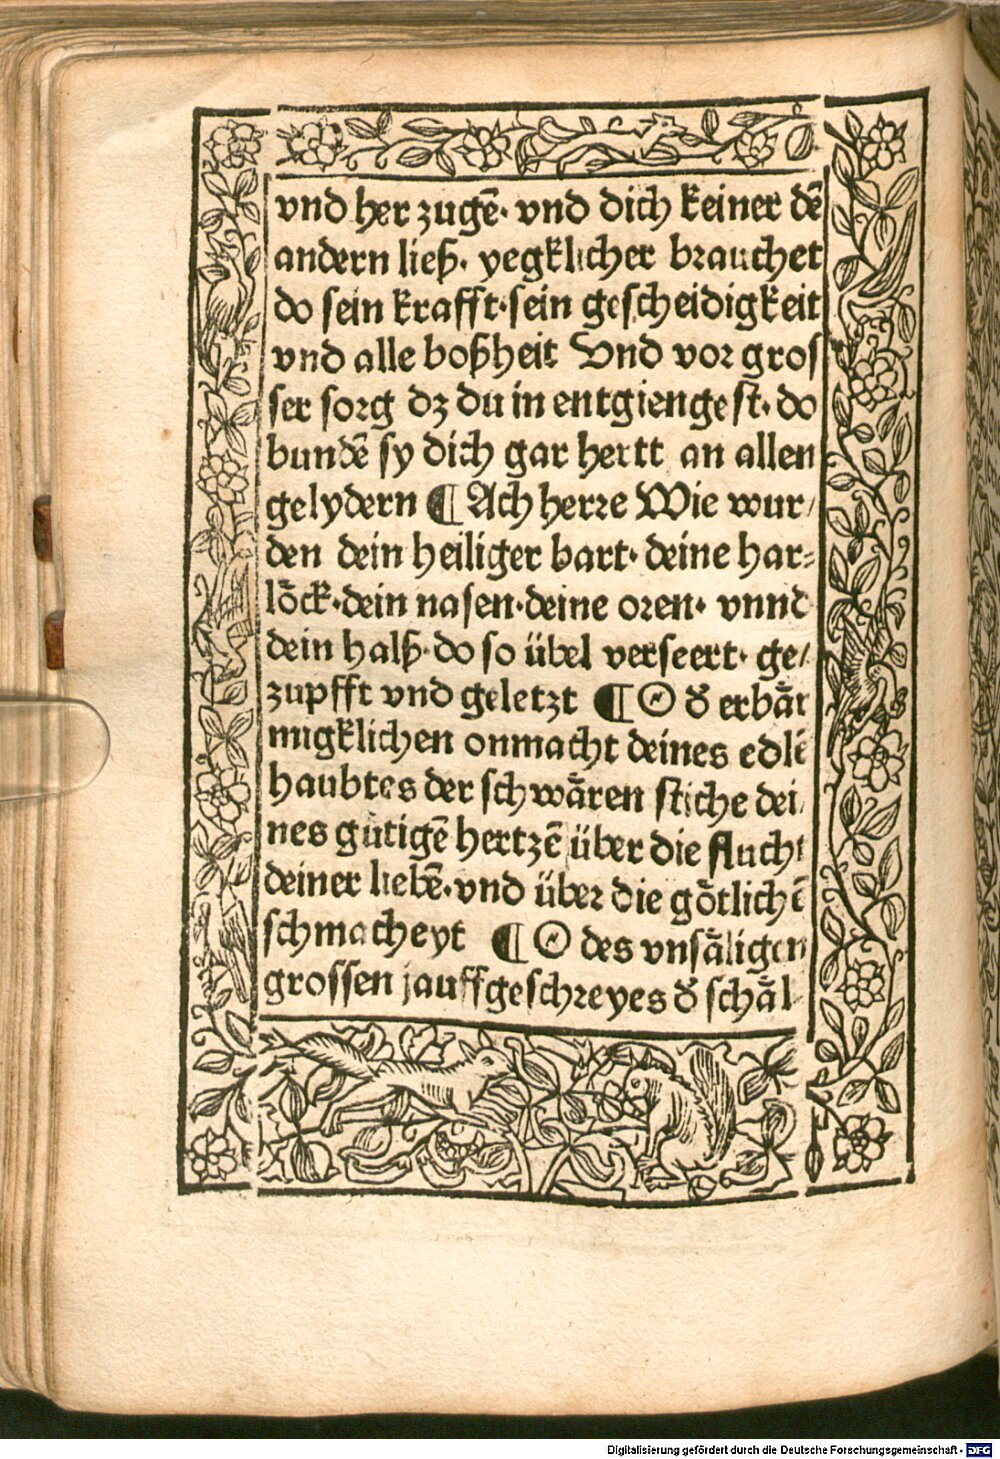 vnd her zugē· vnd dich keiner dē
andern ließ· yegklicher brauchet
do sein krafft·sein gescheidigkeit
vnd alle boßheit Vnd vor gros
ser sorg dz du in entgiengest· do
bundē sy dich gar hertt an allen
gelydern ¶ Ach herre Wie wur/
den dein heiliger bart· deine har-
lo᷑ck·dein nasen·deine oren· vnnd
dein halß·do so übel verseert· ge/
zupfft vnd geletzt ¶ O d᷑ erbår
migklichen onmacht deines edlē
haubtes der schwåren stiche dei
nes gütigē hertzē über die flucht
deiner liebē·vnd über die götlichē
schmacheyt ¶ O des vnsåligen
grossen jauffgeschreyes d᷑ schål
Digitalisierung gefördert durch die Deutsche Forschungsgemeinschaft - DFG